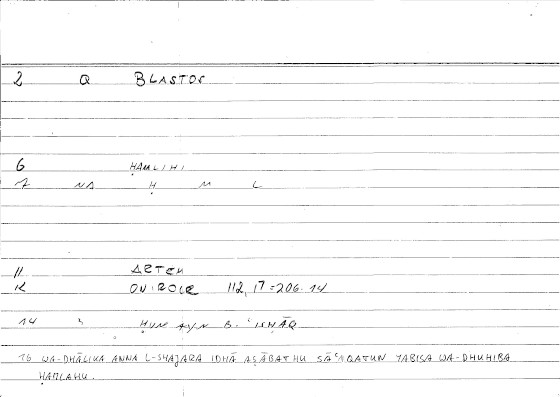 2 Q BLASTOS
6 ḤAMLIHI
7 NA Ḥ M L
11 ARTEM
12 ONIROCR 112, 17 = 206. 14
14 ḤUNAYN B. ʾISḤĀQ
16 WA-DHĀLIKA ANNA L-SHAJARA IDHĀ AṢĀBATHU ṢĀʿIQATUN YABISA WA-DHUHIBA
ḤAMLAHU.